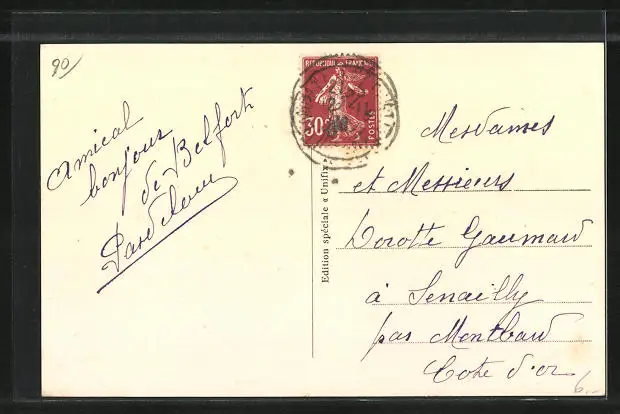 90
Amical
bonjour
de Belfort
REPUBLIQUE FRANÇAISE
30c
POSTES
Edition spéciale « Unifix
Mesdames
et Messieurs
Dorotte Gaumard
à Senailly
par Montbard
Cote d'or
6.-